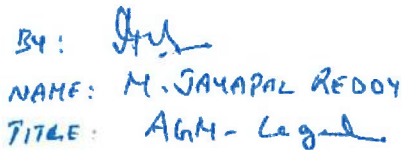 BY:
NAME: M. JAYAPAL REDDY
TITLE: AGM - Legal